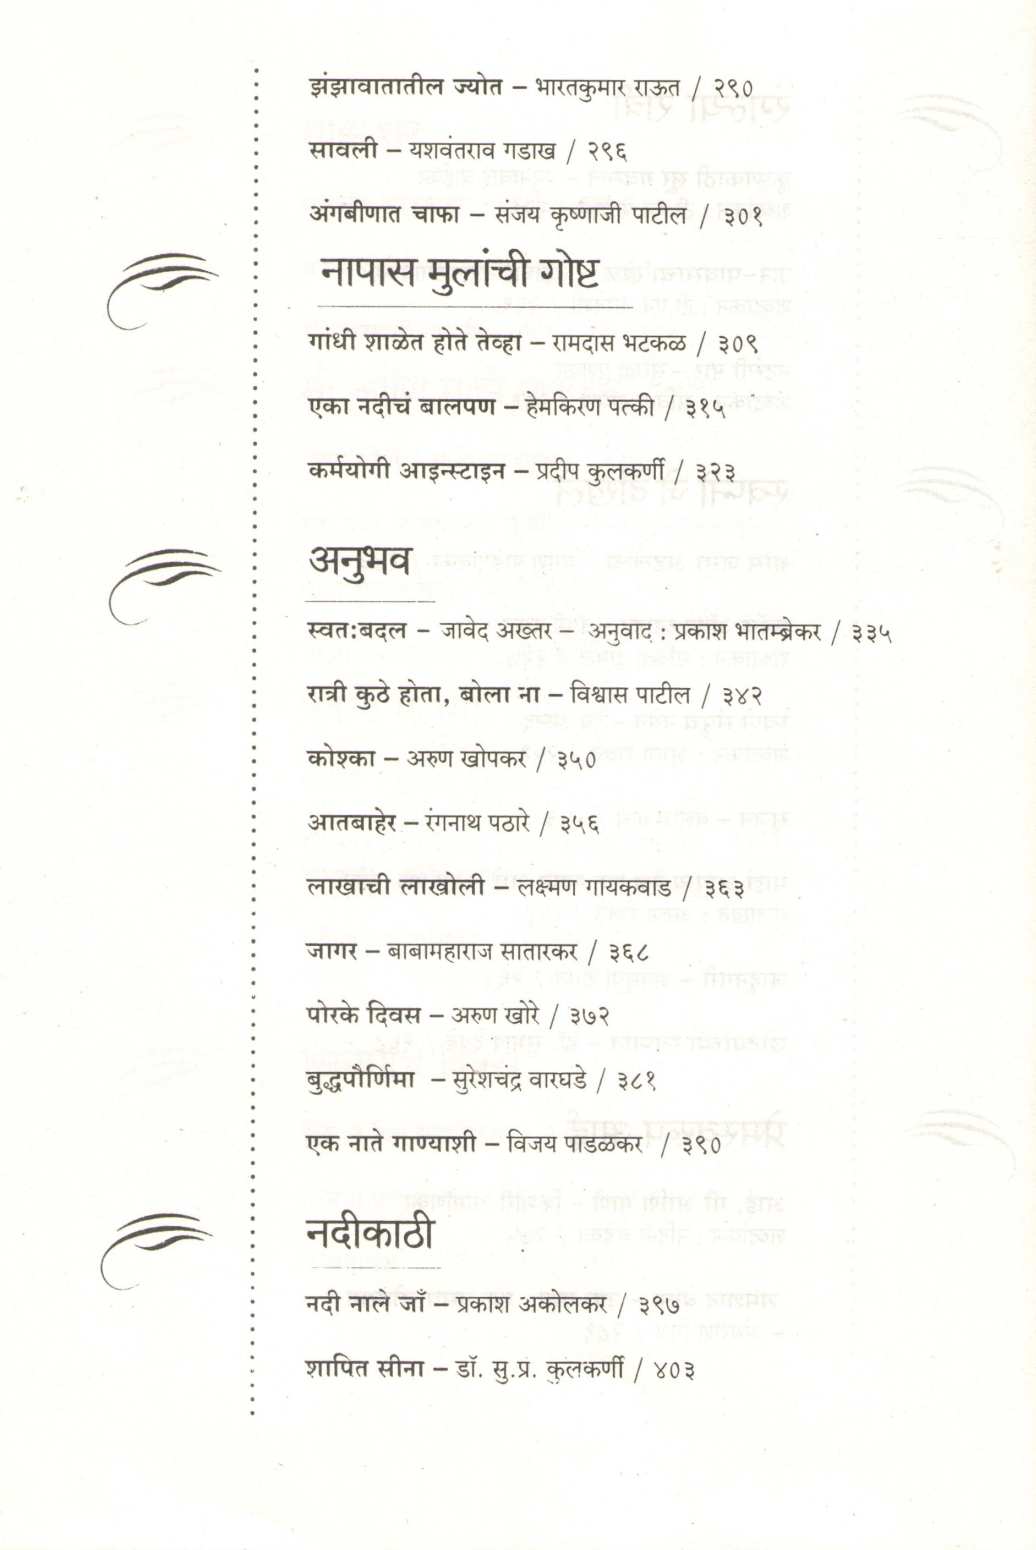 झंझावातातील ज्योत – भारतकुमार राऊत / २९०
सावली – यशवंतराव गडाख / २९६
अंगबीणात चाफा – संजय कृष्णाजी पाटील / ३०१
नापास मुलांची गोष्ट
गांधी शाळेत होते तेव्हा – रामदास भटकळ / ३०९
एका नदीचं बालपण – हेमकिरण पत्की / ३१५
कर्मयोगी आइन्स्टाइन – प्रदीप कुलकर्णी / ३२३
अनुभव
स्वतःबदल – जावेद अख्तर – अनुवाद : प्रकाश भातम्ब्रेकर / ३३५
रात्री कुठे होता, बोला ना – विश्वास पाटील / ३४२
कोश्का – अरुण खोपकर / ३५०
आतबाहेर – रंगनाथ पठारे / ३५६
लाखाची लाखोली – लक्ष्मण गायकवाड / ३६३
जागर – बाबामहाराज सातारकर / ३६८
पोरके दिवस – अरुण खोरे / ३७२
बुद्धपौर्णिमा – सुरेशचंद्र वारघडे / ३८१
एक नाते गाण्याशी – विजय पाडळकर / ३९०
नदीकाठी
नदी नाले जा – प्रकाश अकोलकर / ३९७
शापित सीना – डॉ. सु.प्र. कुलकर्णी / ४०३